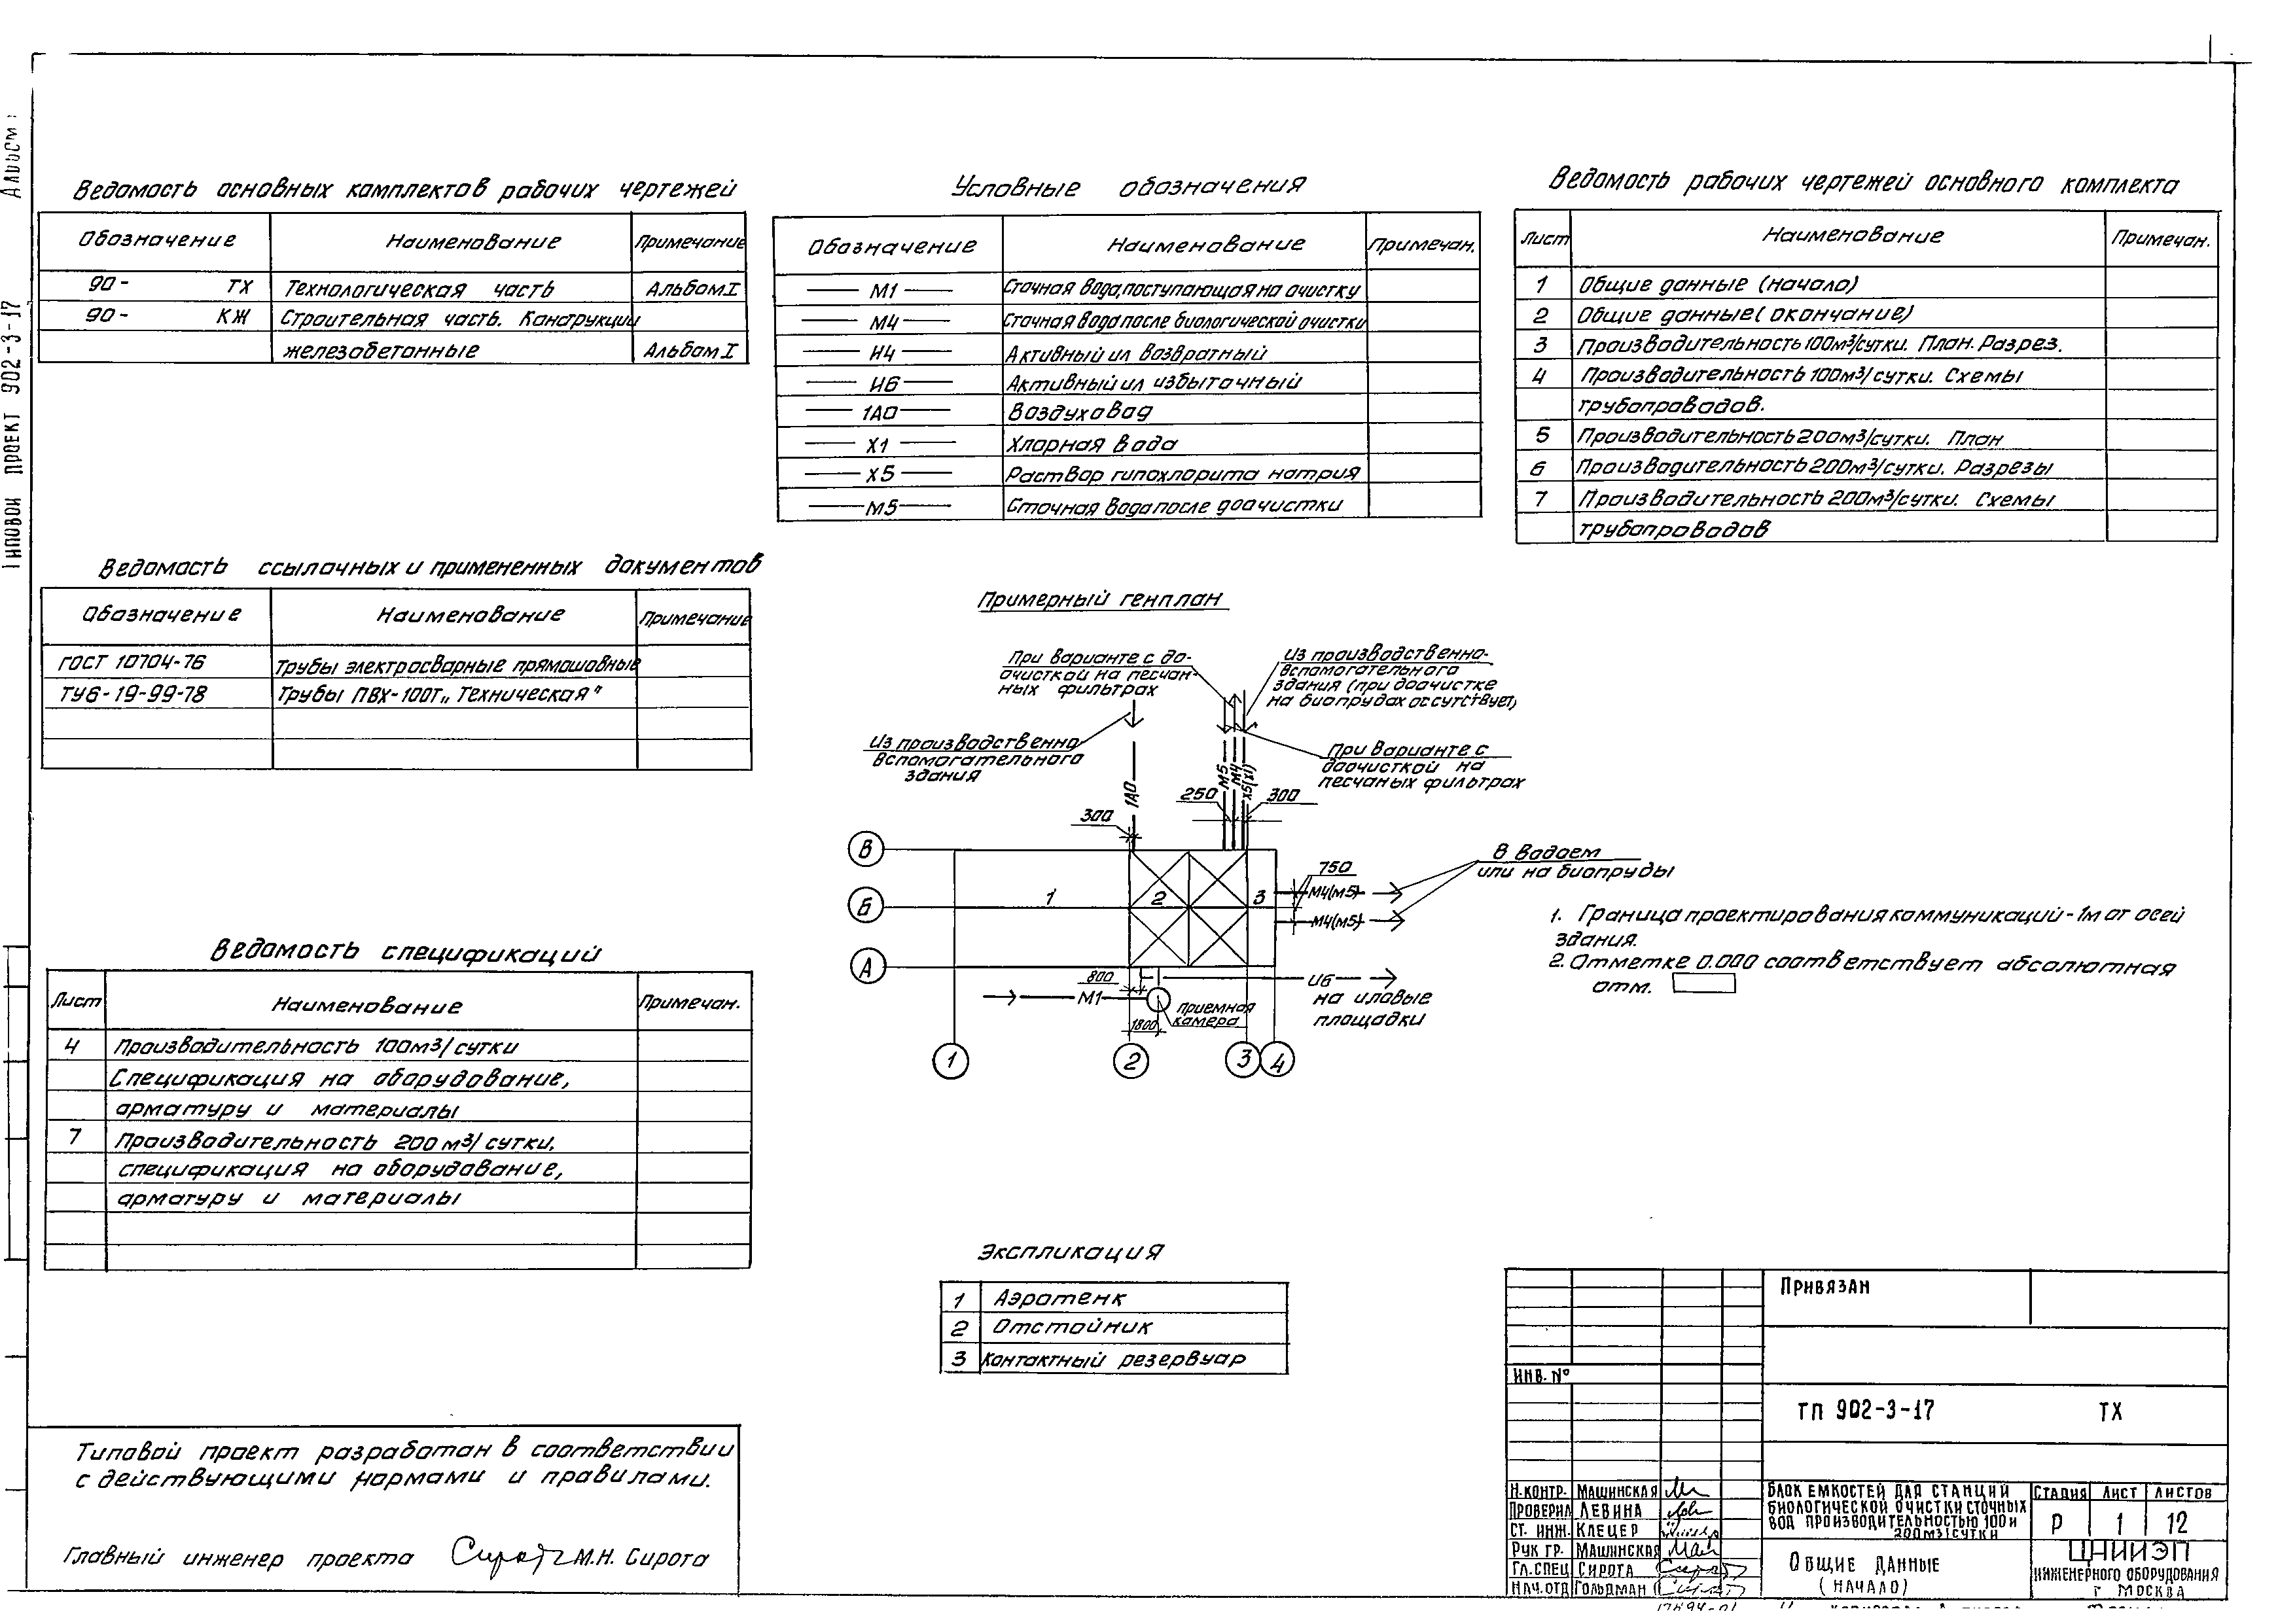 Альбом I
Типовой проект 902-3-17
Ведомость основных комплектов рабочих чертежей
Обозначение Наименование Примечание
90- ТХ Технологическая часть Альбом I
90- КЖ Строительная часть. Конструкции
железобетонные Альбом I
Ведомость ссылочных и примененных документов
Обозначение Наименование Примечание
ГОСТ 10704-76 Трубы электросварные прямошовные
ТУ6-19-99-78 Трубы ПВХ-100Т „Техническая"
Ведомость спецификаций
Лист Наименование Примечан.
4 Производительность 100м3/сутки
Спецификация на оборудование,
арматуру и материалы
7 Производительность 200 м3/сутки,
спецификация на оборудование,
арматуру и материалы
Типовой проект разработан в соответствии
с действующими нормами и правилами.
Главный инженер проекта М.Н. Сирота
Условные обозначения
Обозначение Наименование Примечан.
М1 Сточная вода, поступающая на очистку
М4 Сточная вода после биологической очистки
И4 Активный ил возвратный
И6 Активный ил избыточный
1А0 Воздуховод
Х1 Хлорная вода
Х5 Раствор гипохлорита натрия
М5 Сточная вода после доочистки
Примерный генплан
При варианте с до-
очисткой на песчан-
ных фильтрах
Из производственно-
вспомогательного
здания (при доочистке
на биопрудах отсутствует)
Из производственно-
вспомогательного
здания
При варианте с
доочисткой на
песчаных фильтрах
1А0
М5
М4
Х5(Х1)
250
300
300
В
Б
А
1
2
3
750
М4(М5)
М4(М5)
В водоем
или на биопруды
800
М1
И6
на иловые
площадки
Приемная
камера
1800
1
2
3
4
Экспликация
1 Аэротенк
2 Отстойник
3 Контактный резервуар
Ведомость рабочих чертежей основного комплекта
Лист Наименование Примечан.
1 Общие данные (начало)
2 Общие данные (окончание)
3 Производительность 100м3/сутки. План. Разрез.
4 Производительность 100м3/сутки. Схемы
трубопроводов.
5 Производительность 200м3/сутки. План
6 Производительность 200м3/сутки. Разрезы
7 Производительность 200м3/сутки. Схемы
трубопроводов
1. Граница проектирования коммуникаций - 1м от осей
здания.
2. Отметке 0.000 соответствует абсолютная
отм.
Привязан
Инв. №
ТП 902-3-17 ТХ
Н.контр. Машинская
Проверил Левина
Ст. инж. Клецер
Рук гр. Машинская
Гл.спец Сирота
Нач.отд Гольдман
Блок емкостей для станций
биологической очистки сточных
вод производительностью 100 и
200м3/сутки
Стадия Лист Листов
Р 1 12
Общие данные
(начало)
ЦНИИЭП
инженерного оборудования
г Москва
17894-01